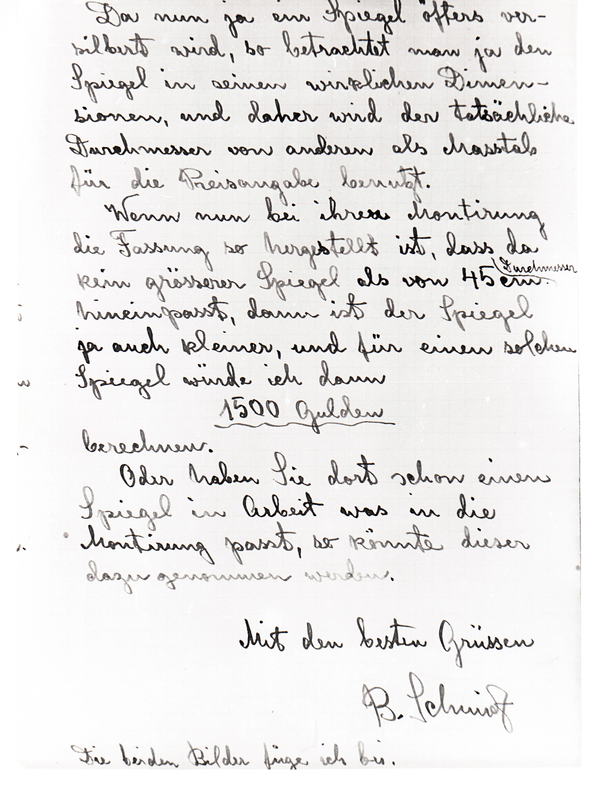 Da nun ja ein Spiegel öfters ver-
silbert wird, so betrachtet man ja den
Spiegel in seinen wirklichen Dimen-
sionen, und daher wird der tatsächliche
Durchmesser von anderen als Masstab
für die Preisangabe benutzt.
Wenn nun bei ihrer Montirung
die Fassung so hergestellt ist, dass da
kein grösserer Spiegel als von 45 cm. Durchmesser
hineinpasst, dann ist der Spiegel
ja auch kleiner, und für einen solchen
Spiegel würde ich dann
1500 Gulden
berechnen.
Oder haben Sie dort schon einen
Spiegel in Arbeit was in die
Montirung passt, so könnte dieser
dazu genommen werden.
Mit den besten Grüssen
B. Schmidt
Die beiden Bilder füge ich bei.